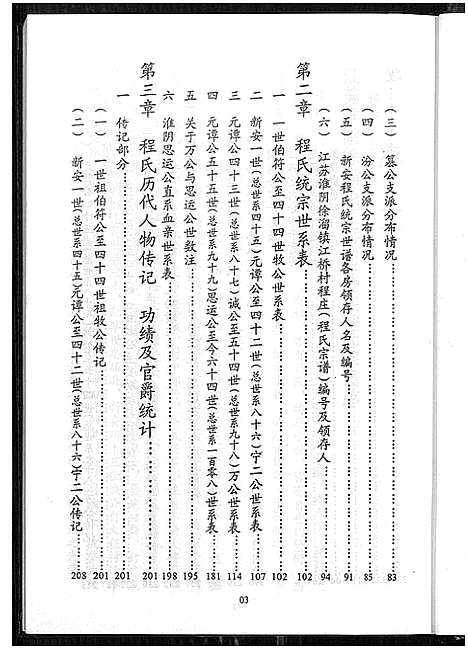 （三） 篁公支派分布情况 83
（四） 汾公支派分布情况 85
（五） 新安程氏统宗世谱各房领存人名及编号 91
（六） 江苏淮阴徐溜镇江桥村程庄（程氏宗谱）编号及领存人 94
第二章 程氏统宗世系表 102
一 一世伯符公至四十四世牧公世系表 102
二 新安一世（总世系四十五）元谭公至四十二世（总世系八十六）宁二公世系表 107
三 元谭公四十三世（总世系八十七）诚公至五十四世（总世系九十八）万公世系表 114
四 元谭公五十五世（总世系九十九）思运公至今六十四世（总世系一百零八）世系表 181
五 关于万公与思运公世数注 195
六 淮阴思运公直系血亲世系表 198
第三章 程氏历代人物传记 功绩及官爵统计 201
一 传记部分 201
（一） 一世祖伯符公至四十四世祖牧公传记 201
（二） 新安一世（总世系四十五）元谭公至四十二世（总世系八十六）宁二公传记 208
03